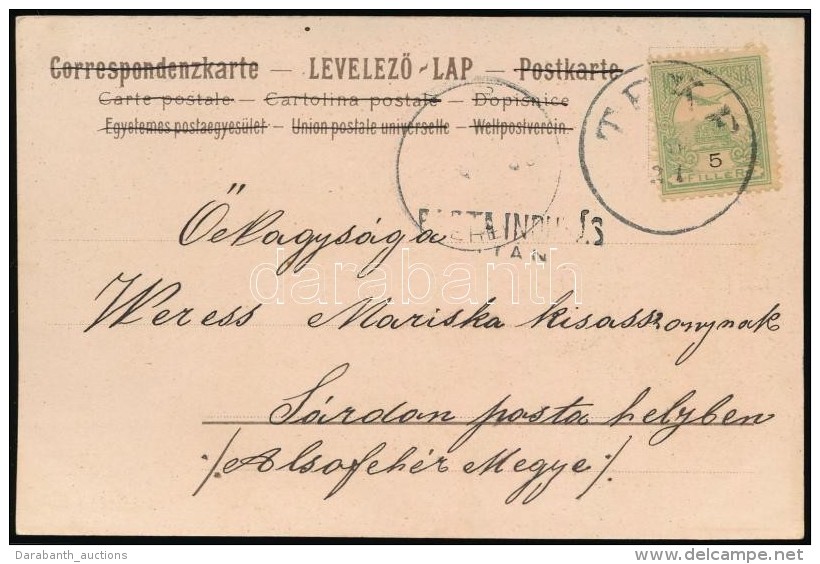 Correspondenzkarte — LEVELEZŐ-LAP — Postkarte
Carte postale — Cartolina postale — Dopisnice
Egyetemes postaegyesület — Union postale universelle — Weltpostverein
5
FILLÉR
UTÁN
Őnagysága
darabanth
Weress Mariska kisasszonynak
Sárdon posta helyben
/Alsofehér Megye/
Darabanth_auctions
www.delcampe.net